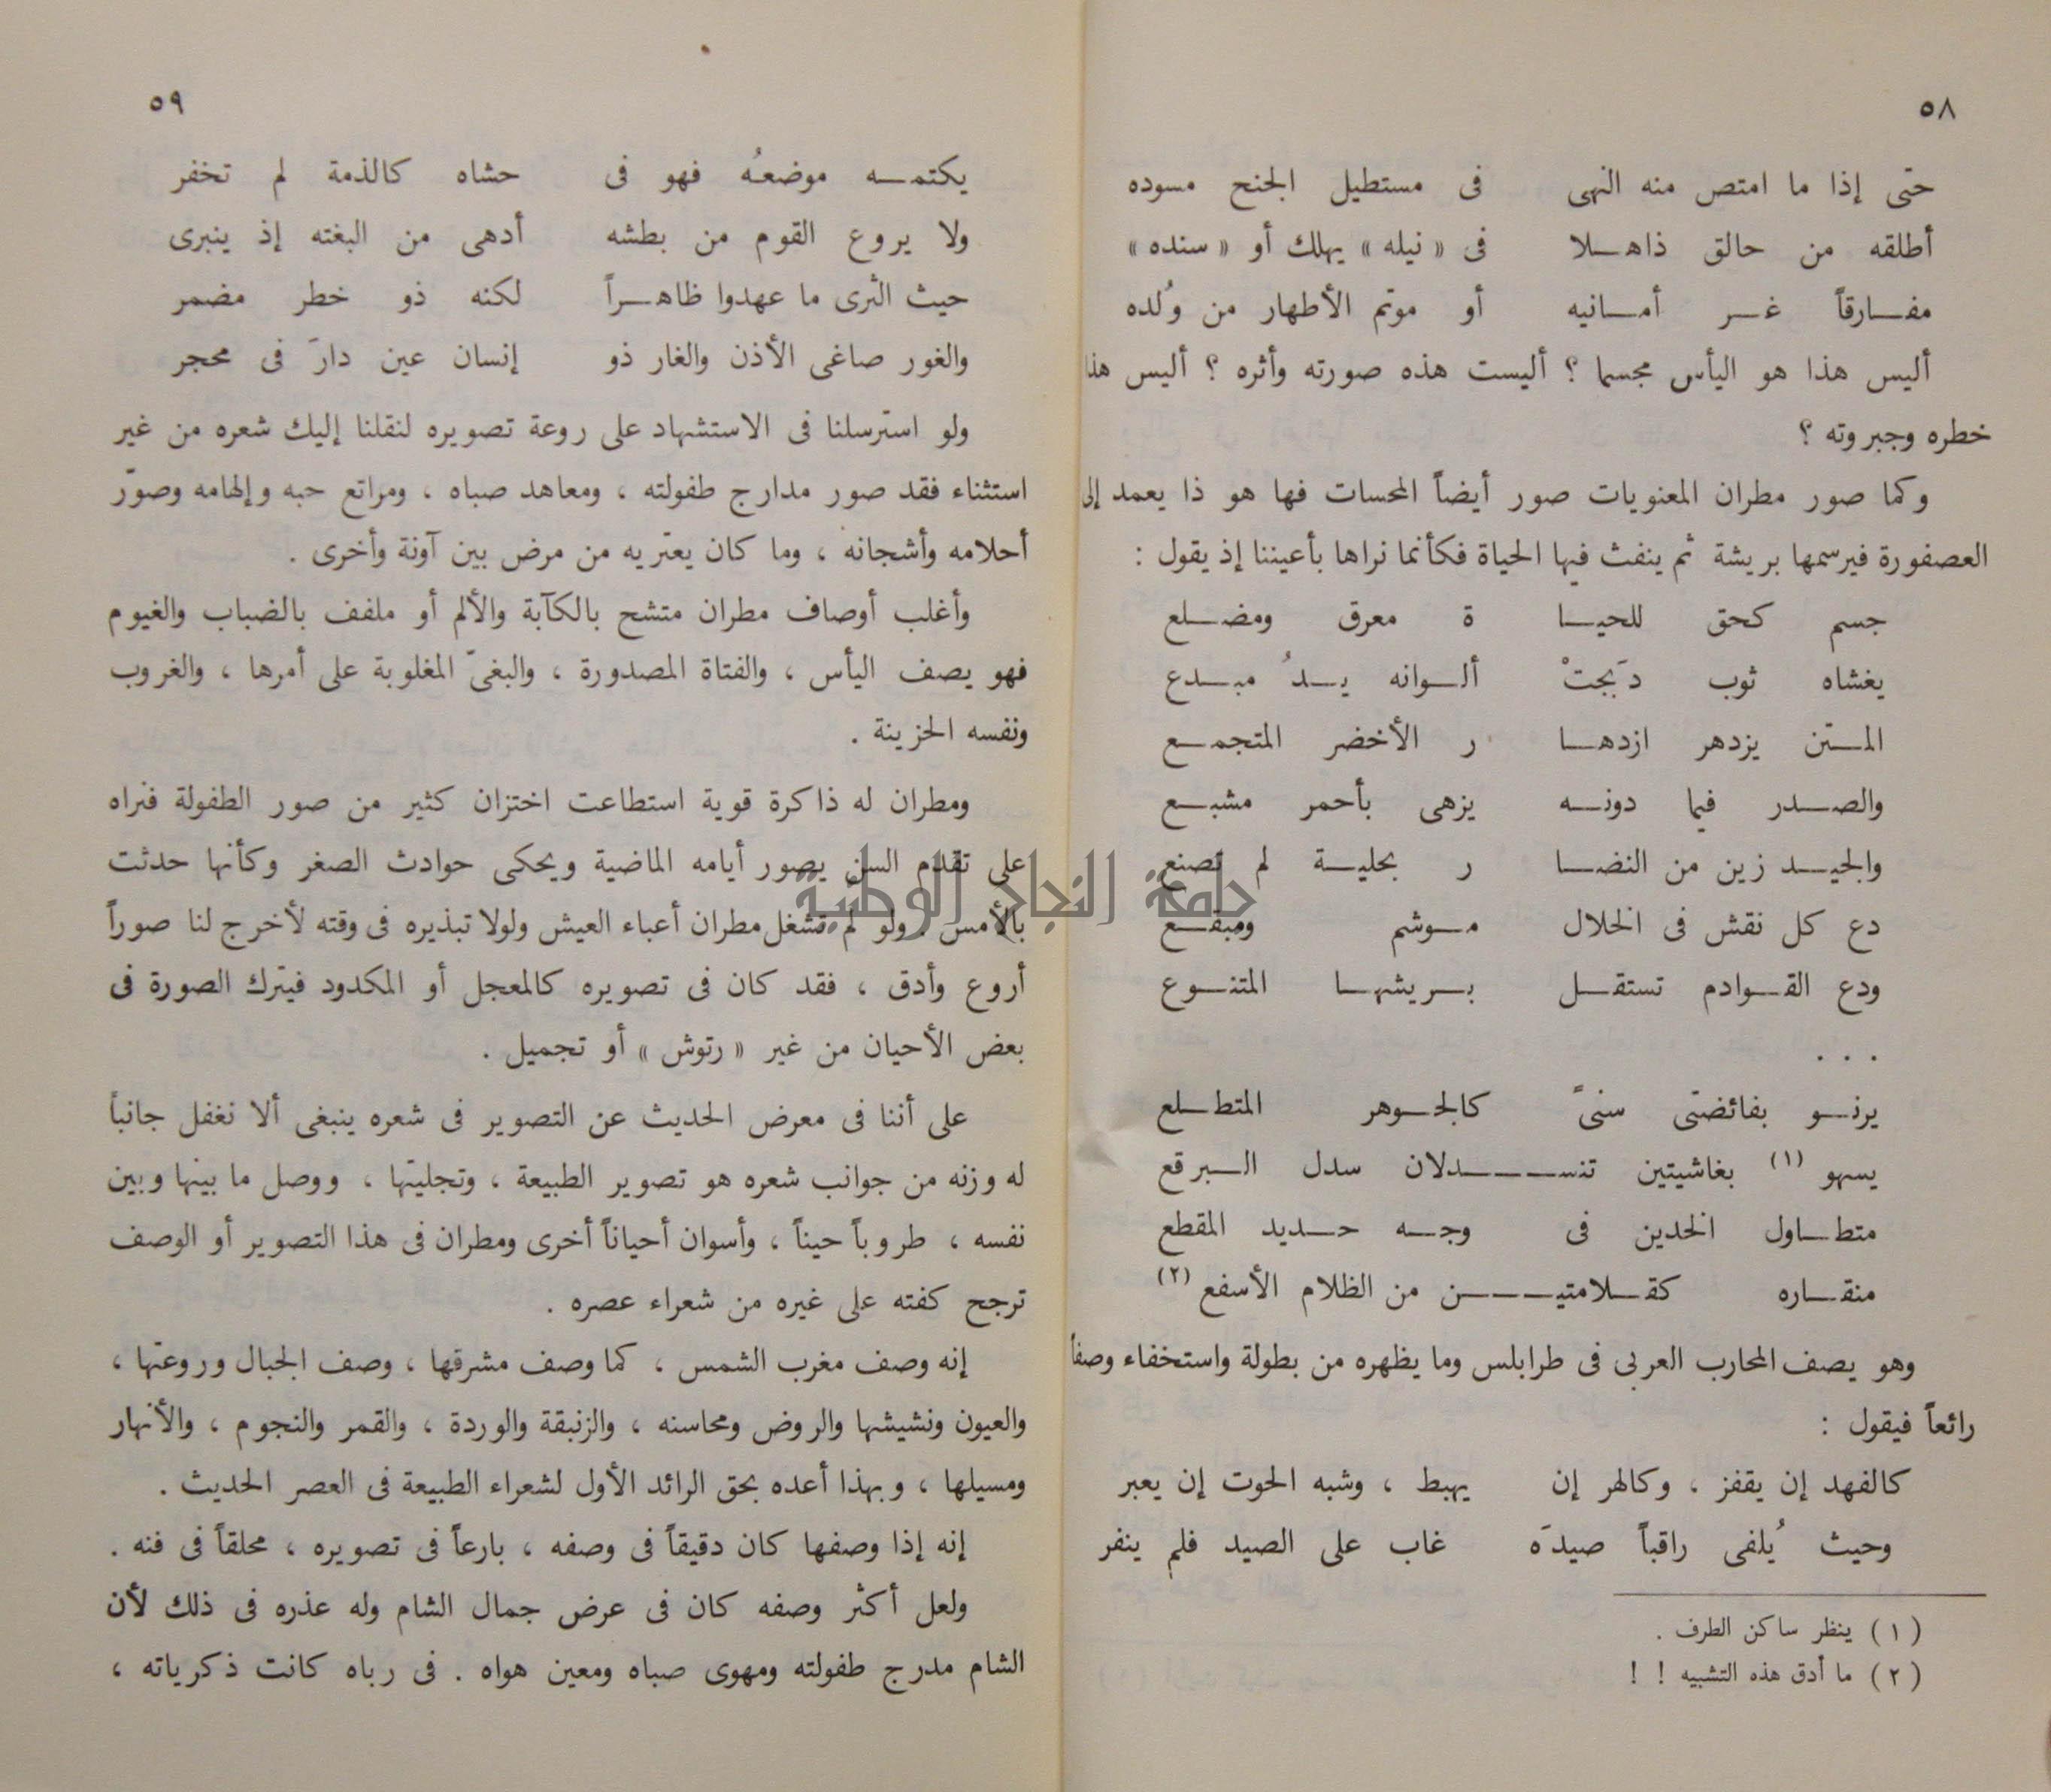 ٥٨
حتى إذا ما امتص منه النهى فى مستطيل الجنح مسوده
أطلقه من حالق ذاهـلا فى « نيله » يهلك أو « سنده »
مفـارقاً غـر أمـانيه أو موتم الأطهار من وُلده
أليس هذا هو اليأس مجسما ؟ أليست هذه صورته وأثره ؟ أليس هذا
خطره وجبروته ؟
وكما صور مطران المعنويات صور أيضاً المحسات فها هو ذا يعمد إلى
العصفورة فيرسمها بريشة ثم ينفث فيها الحياة فكأنما نراها بأعيننا إذ يقول :
جسم كحق للحيـا ة معرق ومضـلع
يغشاه ثوب دَبجتْ ألـوانه يـدُ مبـدع
المـتن يزدهر ازدهـا ر الأخضر المتجمـع
والصـدر فيما دونـه يزهى بأحمر مشبـع
والجيـد زين من النضـا ر بحليـة لم تصنع
دع كل نقش فى الخلال مـوشم ومبقـع
ودع القـوادم تستقـل بـريشهـا المتنـوع
. . .
يرنـو بفائضتى سنىً كالجـوهر المتطـلع
يسهو (١) بغاشيتين تنسـدلان سدل الـبرقع
متطـاول الخدين فى وجـه حـديد المقطع
منقـاره كقـلامتيـن من الظلام الأسفع (٢)
وهو يصف المحارب العربى فى طرابلس وما يظهره من بطولة واستخفاء وصفاً
رائعاً فيقول :
كالفهد إن يقفز ، وكالهر إن يهبط ، وشبه الحوت إن يعبر
وحيث يُلفى راقباً صيدَه غاب على الصيد فلم ينفر
( ١ ) ينظر ساكن الطرف .
( ٢ ) ما أدق هذه التشبيه ! !
٥٩
يكتمـه موضعهُ فهو فى حشاه كالذمة لم تخفر
ولا يروع القوم من بطشه أدهى من البغته إذ ينبرى
حيث الثرى ما عهدوا ظاهـراً لكنه ذو خطر مضمر
والغور صاغى الأذن والغار ذو إنسان عين دارَ فى محجر
ولو استرسلنا فى الاستشهاد على روعة تصويره لنقلنا إليك شعره من غير
استثناء فقد صور مدارج طفولته ، ومعاهد صباه ، ومراتع حبه وإلهامه وصوّر
أحلامه وأشجانه ، وما كان يعتريه من مرض بين آونة وأخرى .
وأغلب أوصاف مطران متشح بالكآبة والألم أو ملفف بالضباب والغيوم
فهو يصف اليأس ، والفتاة المصدورة ، والبغىّ المغلوبة على أمرها ، والغروب
ونفسه الحزينة .
ومطران له ذاكرة قوية استطاعت اختزان كثير من صور الطفولة فنراه
على تقدم السن يصور أيامه الماضية ويحكى حوادث الصغر وكأنها حدثت
بالأمس . ولو لم تشغل مطران أعباء العيش ولولا تبذيره فى وقته لأخرج لنا صوراً
أروع وأدق ، فقد كان فى تصويره كالمعجل أو المكدود فيترك الصورة فى
بعض الأحيان من غير « رتوش » أو تجميل .
على أننا فى معرض الحديث عن التصوير فى شعره ينبغى ألا نغفل جانباً
له وزنه من جوانب شعره هو تصوير الطبيعة ، وتجليتها ، ووصل ما بينها وبين
نفسه ، طروباً حيناً ، وأسوان أحياناً أخرى ومطران فى هذا التصوير أو الوصف
ترجح كفته على غيره من شعراء عصره .
إنه وصف مغرب الشمس ، كما وصف مشرقها ، وصف الجبال وروعتها ،
والعيون ونشيشها والروض ومحاسنه ، والزنبقة والوردة ، والقمر والنجوم ، والأنهار
ومسيلها ، وبهذا أعده بحق الرائد الأول لشعراء الطبيعة فى العصر الحديث .
إنه إذا وصفها كان دقيقاً فى وصفه ، بارعاً فى تصويره ، محلقاً فى فنه .
ولعل أكثر وصفه كان فى عرض جمال الشام وله عذره فى ذلك لأن
الشام مدرج طفولته ومهوى صباه ومعين هواه . فى رباه كانت ذكرياته ،
جامعة النجاح الوطنية